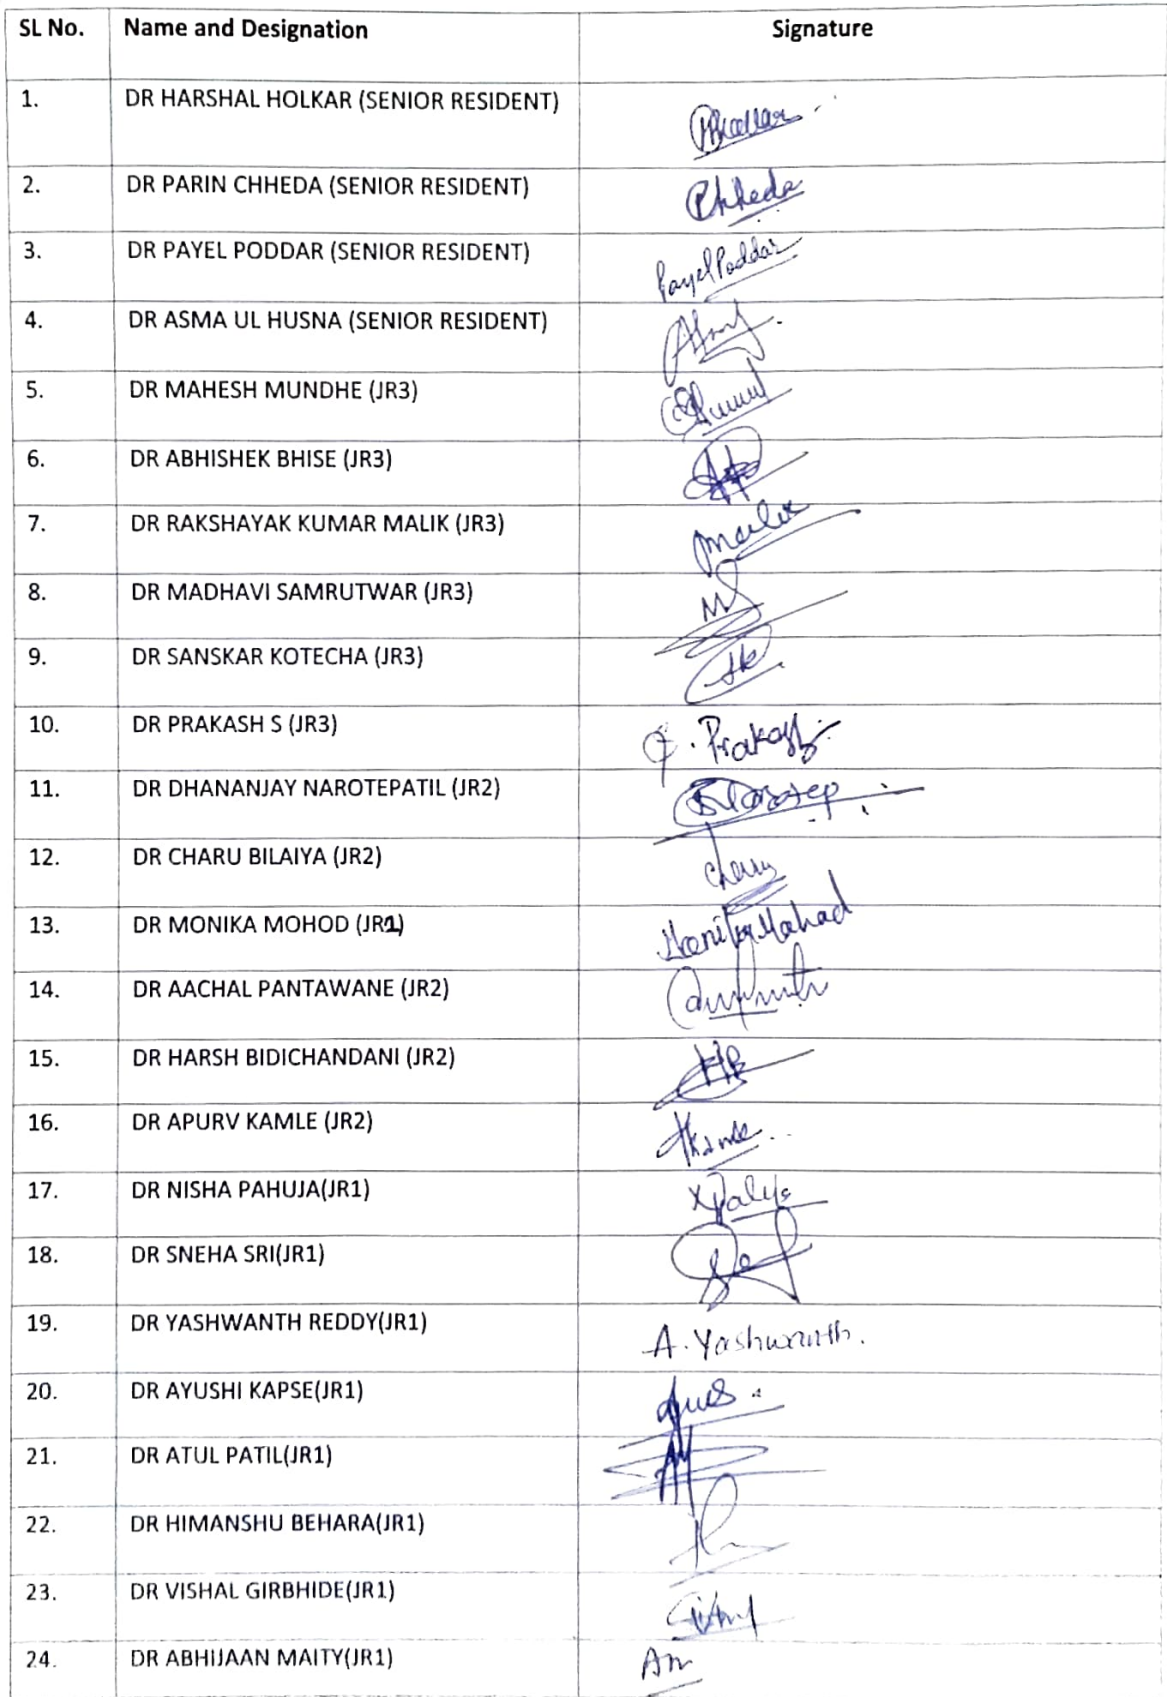 SL No. Name and Designation Signature
1. DR HARSHAL HOLKAR (SENIOR RESIDENT)
2. DR PARIN CHHEDA (SENIOR RESIDENT) Chheda
3. DR PAYEL PODDAR (SENIOR RESIDENT) Payel Poddar
4. DR ASMA UL HUSNA (SENIOR RESIDENT)
5. DR MAHESH MUNDHE (JR3)
6. DR ABHISHEK BHISE (JR3)
7. DR RAKSHAYAK KUMAR MALIK (JR3) Malik
8. DR MADHAVI SAMRUTWAR (JR3) MS
9. DR SANSKAR KOTECHA (JR3) SK
10. DR PRAKASH S (JR3) S. Prakash
11. DR DHANANJAY NAROTEPATIL (JR2)
12. DR CHARU BILAIYA (JR2) Charu
13. DR MONIKA MOHOD (JR1) Monika Mohod
14. DR AACHAL PANTAWANE (JR2)
15. DR HARSH BIDICHANDANI (JR2) HB
16. DR APURV KAMLE (JR2) AKamle
17. DR NISHA PAHUJA(JR1)
18. DR SNEHA SRI(JR1)
19. DR YASHWANTH REDDY(JR1) A. Yashwanth.
20. DR AYUSHI KAPSE(JR1)
21. DR ATUL PATIL(JR1)
22. DR HIMANSHU BEHARA(JR1)
23. DR VISHAL GIRBHIDE(JR1)
24. DR ABHIJAAN MAITY(JR1) Am